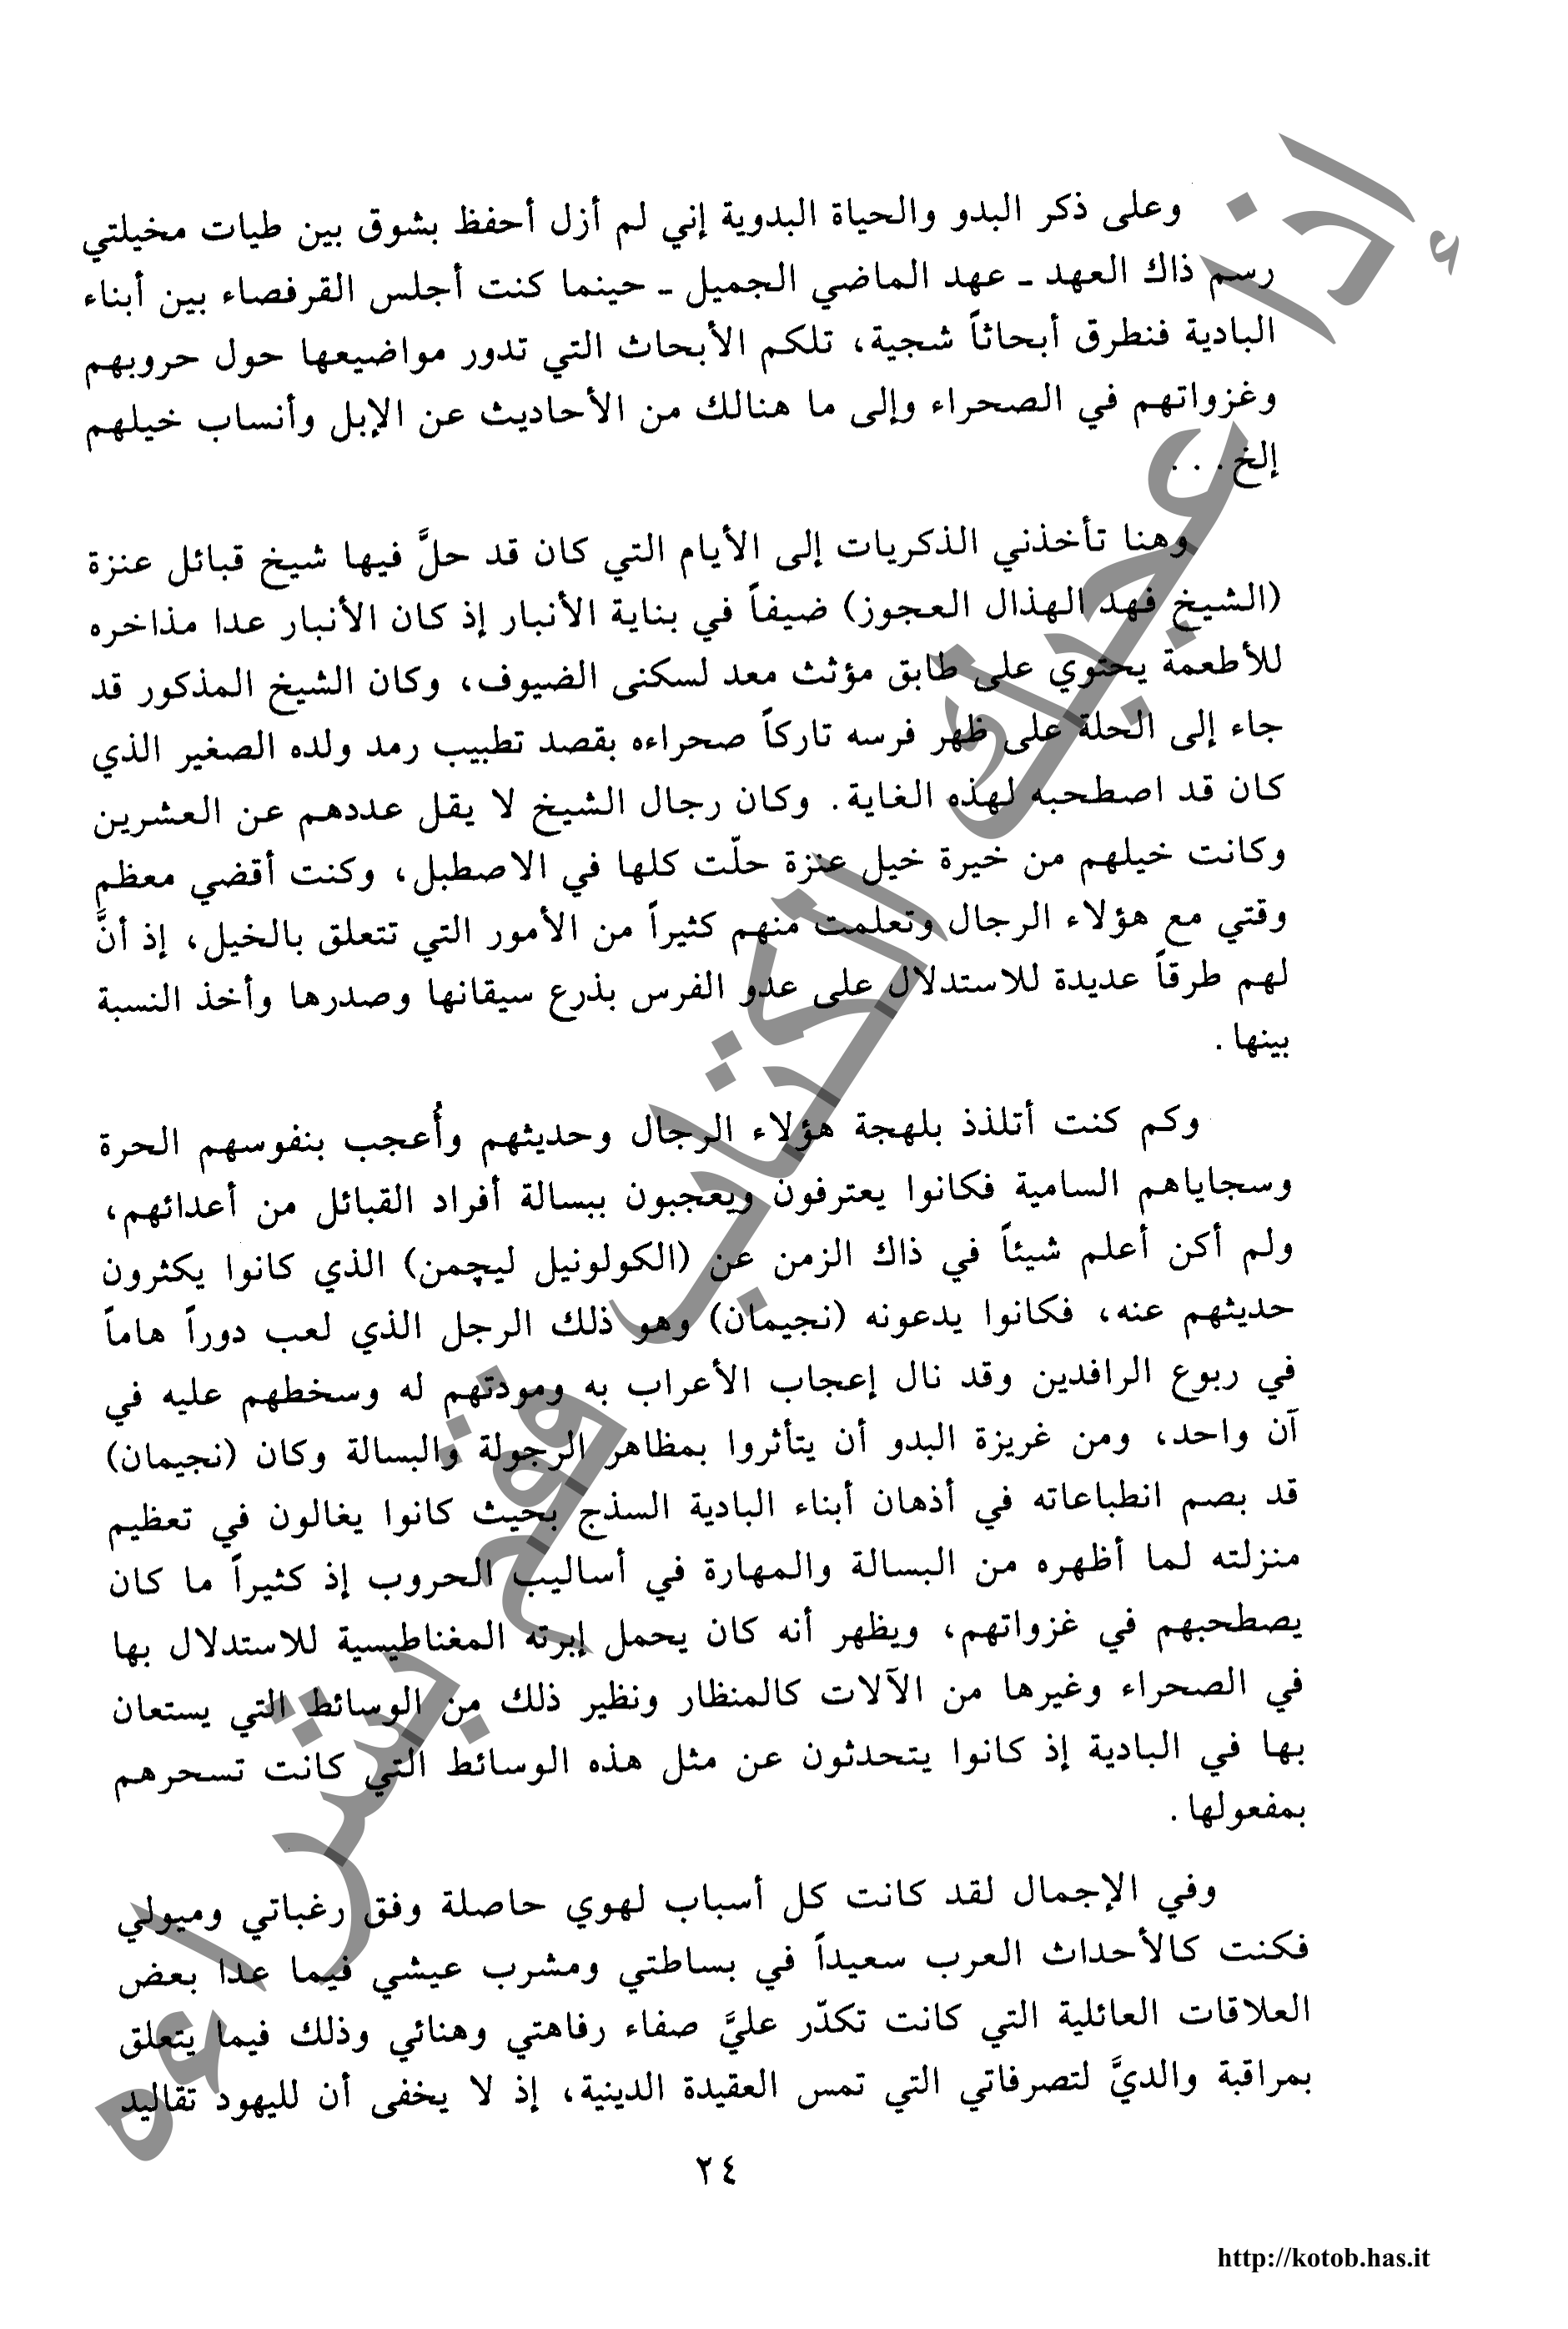 وعلى ذكر البدو والحياة البدوية إني لم أزل أحفظ بشوق بين طيات مخيلتي
رسم ذاك العهد ـ عهد الماضي الجميل ـ حينما كنت أجلس القرفصاء بين أبناء
البادية فنطرق أبحاثاً شجية، تلكم الأبحاث التي تدور مواضيعها حول حروبهم
وغزواتهم في الصحراء وإلى ما هنالك من الأحاديث عن الإبل وأنساب خيلهم
إلخ . . .
وهنا تأخذني الذكريات إلى الأيام التي كان قد حلَّ فيها شيخ قبائل عنزة
(الشيخ فهد الهذال العجوز) ضيفاً في بناية الأنبار إذ كان الأنبار عدا مذاخره
للأطعمة يحتوي على طابق مؤثث معد لسكنى الضيوف، وكان الشيخ المذكور قد
جاء إلى الحلة على ظهر فرسه تاركاً صحراءه بقصد تطبيب رمد ولده الصغير الذي
كان قد اصطحبه لهذه الغاية. وكان رجال الشيخ لا يقل عددهم عن العشرين
وكانت خيلهم من خيرة خيل عنزة حلّت كلها في الاصطبل، وكنت أقضي معظم
وقتي مع هؤلاء الرجال وتعلمت منهم كثيراً من الأمور التي تتعلق بالخيل، إذ أنَّ
لهم طرقاً عديدة للاستدلال على عدو الفرس بذرع سيقانها وصدرها وأخذ النسبة
بينها.
وكم كنت أتلذذ بلهجة هؤلاء الرجال وحديثهم وأُعجب بنفوسهم الحرة
وسجاياهم السامية فكانوا يعترفون ويعجبون ببسالة أفراد القبائل من أعدائهم،
ولم أكن أعلم شيئاً في ذاك الزمن عن (الكولونيل ليچمن) الذي كانوا يكثرون
حديثهم عنه، فكانوا يدعونه (نجيمان) وهو ذلك الرجل الذي لعب دوراً هاماً
في ربوع الرافدين وقد نال إعجاب الأعراب به ومودتهم له وسخطهم عليه في
آن واحد، ومن غريزة البدو أن يتأثروا بمظاهر الرجولة والبسالة وكان (نجيمان)
قد بصم انطباعاته في أذهان أبناء البادية السذج بحيث كانوا يغالون في تعظيم
منزلته لما أظهره من البسالة والمهارة في أساليب الحروب إذ كثيراً ما كان
يصطحبهم في غزواتهم، ويظهر أنه كان يحمل إبرته المغناطيسية للاستدلال بها
في الصحراء وغيرها من الآلات كالمنظار ونظير ذلك من الوسائط التي يستعان
بها في البادية إذ كانوا يتحدثون عن مثل هذه الوسائط التي كانت تسحرهم
بمفعولها.
وفي الإجمال لقد كانت كل أسباب لهوي حاصلة وفق رغباتي وميولي
فكنت كالأحداث العرب سعيداً في بساطتي ومشرب عيشي فيما عدا بعض
العلاقات العائلية التي كانت تكدّر عليَّ صفاء رفاهتي وهنائي وذلك فيما يتعلق
بمراقبة والديَّ لتصرفاتي التي تمس العقيدة الدينية، إذ لا يخفى أن لليهود تقاليد
٢٤
http://kotob.has.it
إذا أعجبك الكتاب فقم بشراءه